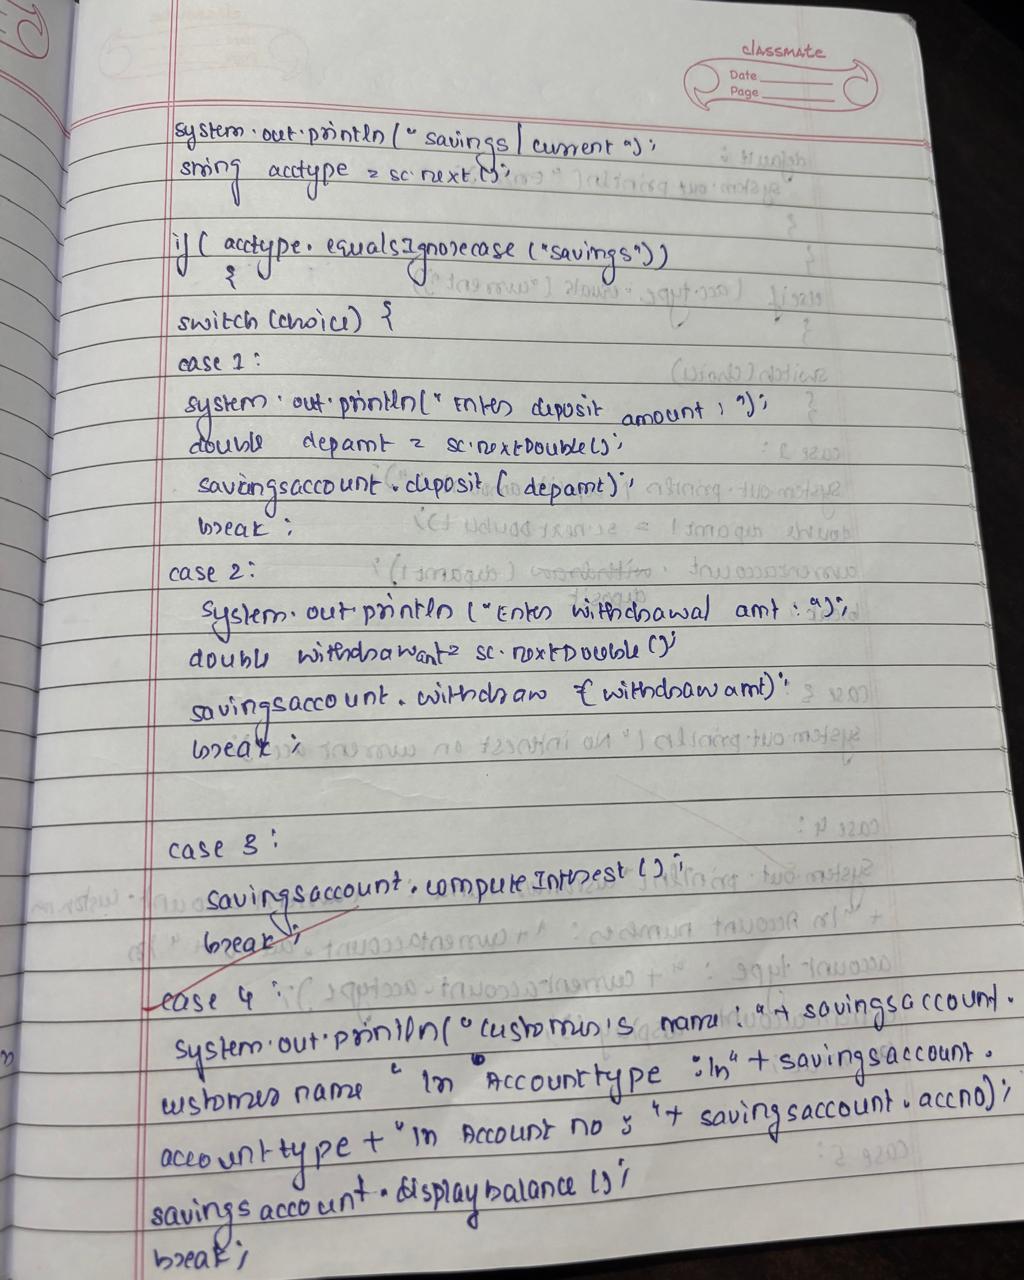 classmate
Date
Page
system.out.println("savings/current");
string acctype = sc.next();
if( acctype.equalsIgnorecase ("savings"))
{
switch (choice) {
case 1:
system.out.println(" Enter deposit amount : ");
double depamt = sc.nextDouble();
savingsaccount.deposit( depamt);
break;
case 2:
system.out.println ("Enter withdrawal amt : ");
double withdrawamt= sc.nextDouble();
savingsaccount.withdraw (withdrawamt);
break;
case 3:
savingsaccount.computeInterest();
break;
case 4:
system.out.println("customer's name : "+ savingsaccount.
customer name " \n "Account type :\n" + savingsaccount.
account type + "\n Account no : "+ savingsaccount.accno);
savings account.displaybalance();
break;